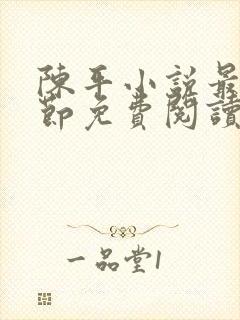 陳平小說最
節免費閱讀
一品堂1